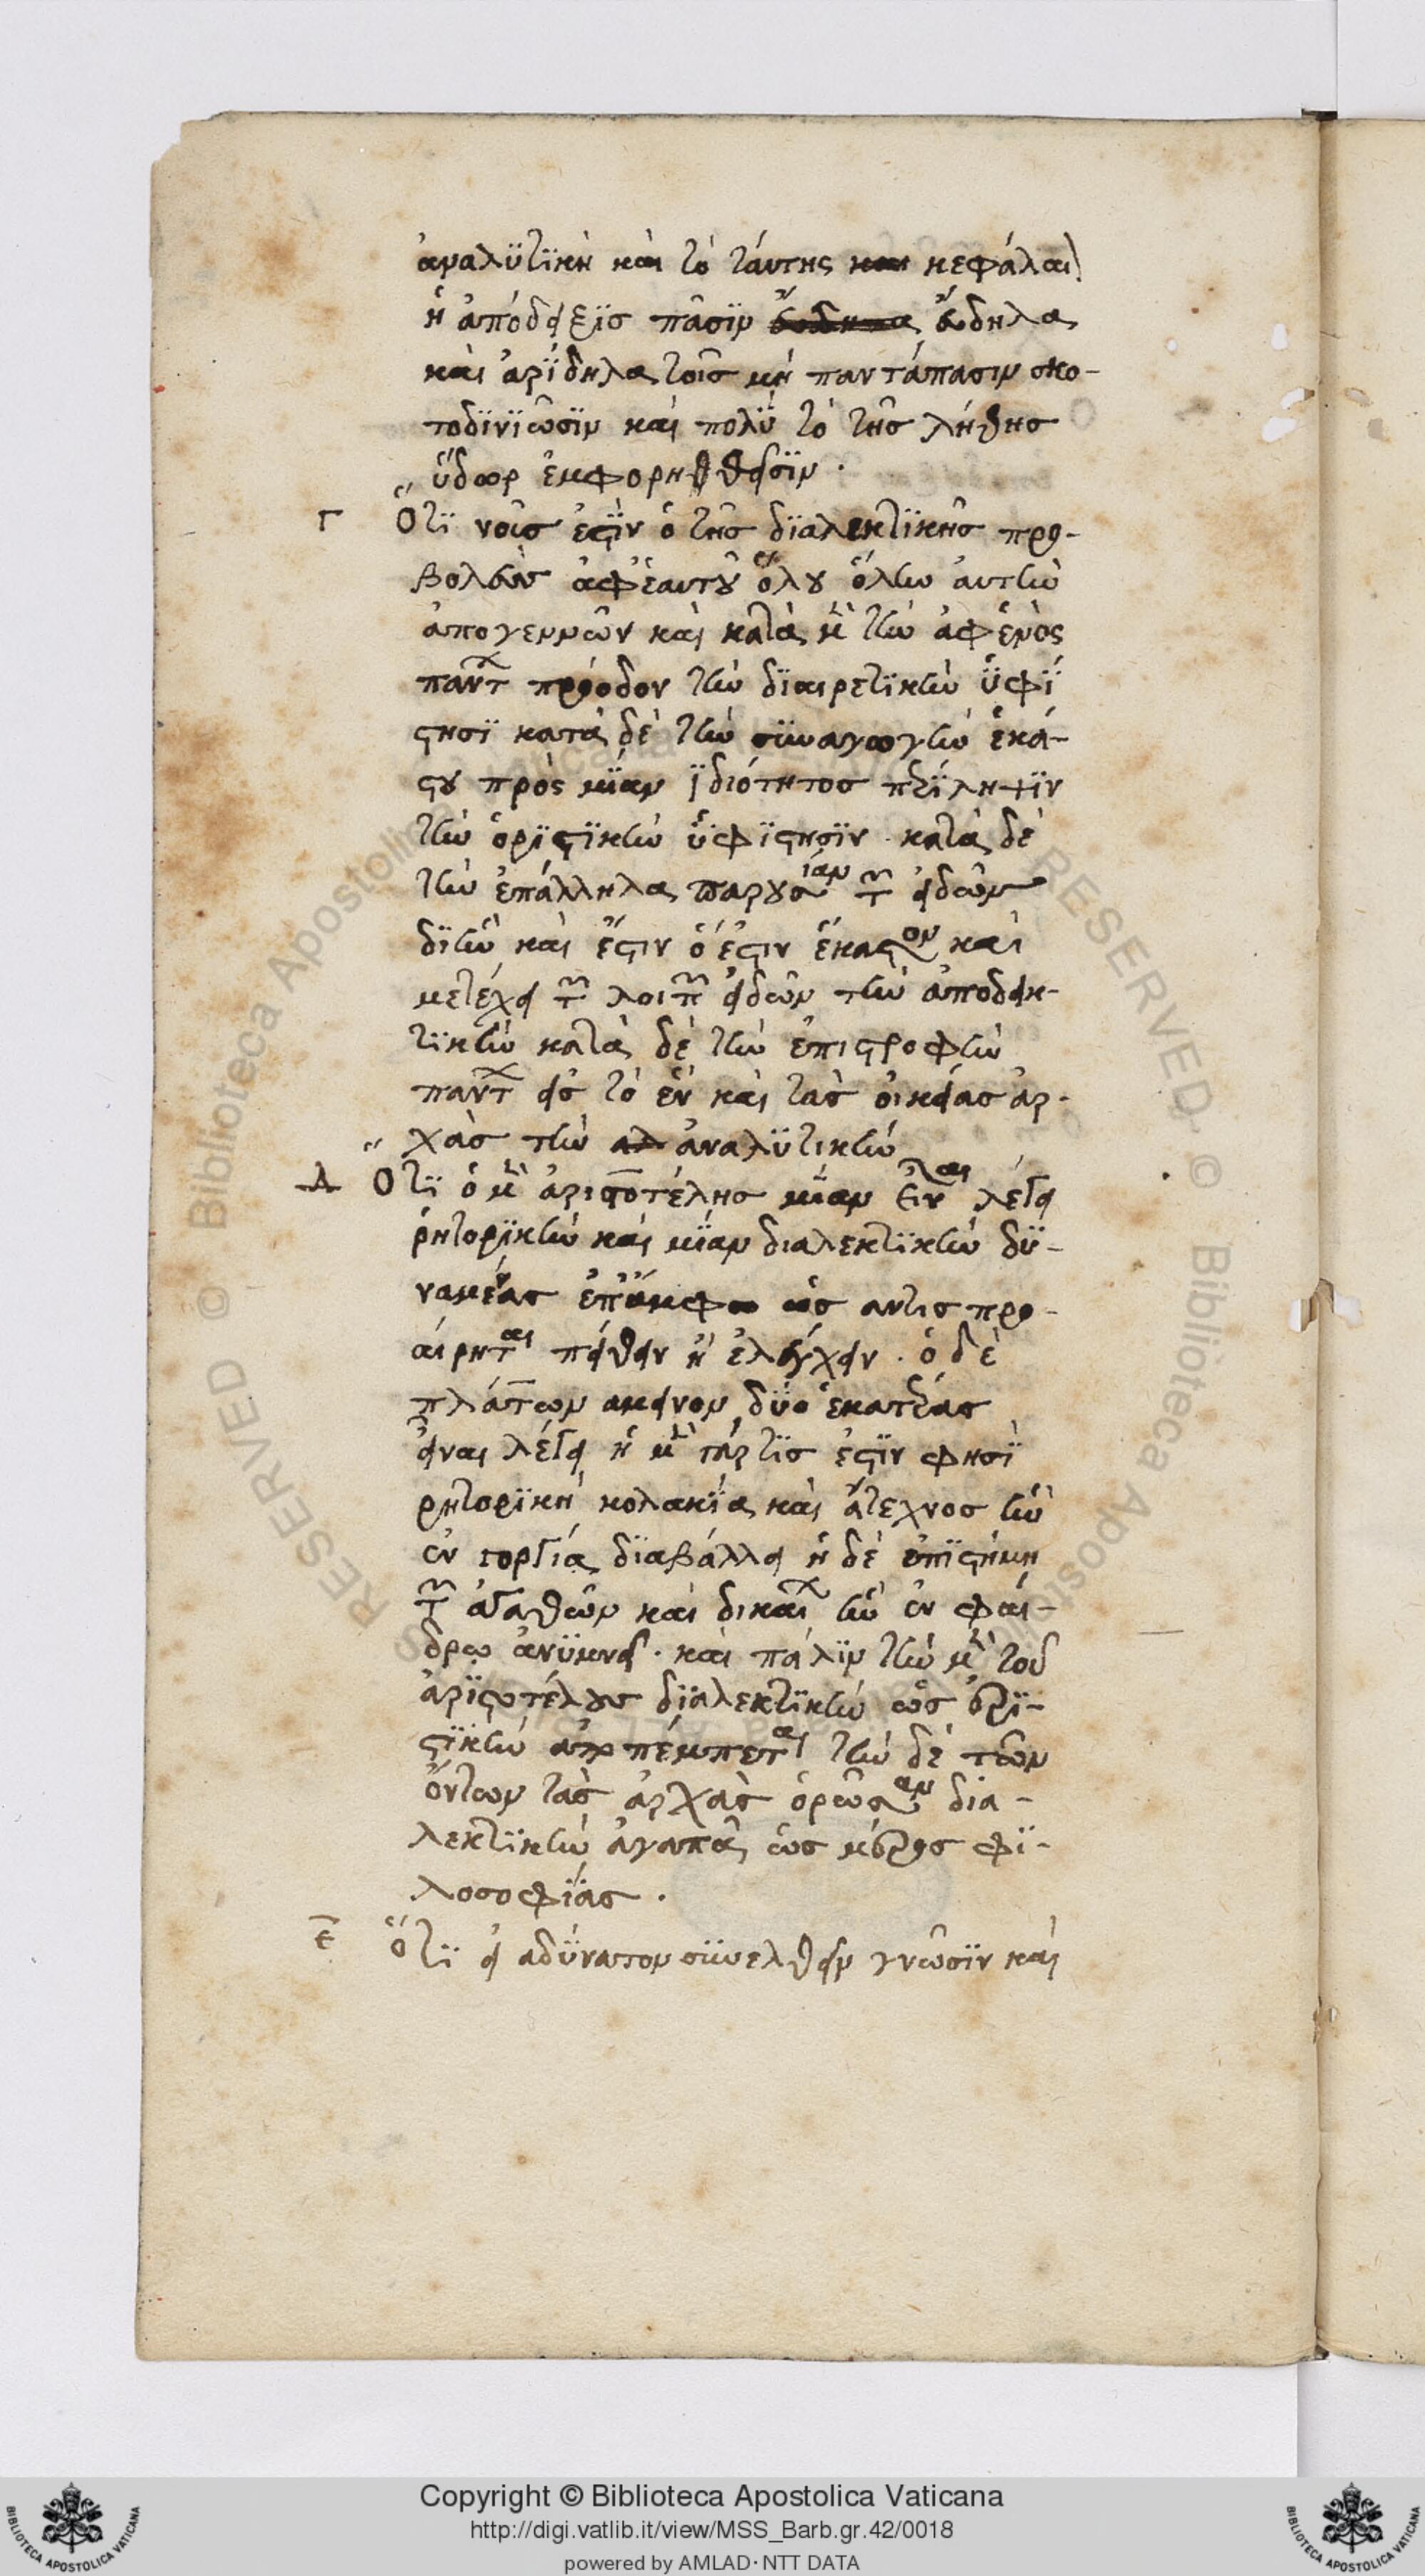 ἀναλϋτϊκὴ καὶ τὸ ταύτης και κεφάλαι)
ἡ ἀπόδειξϊσ πᾶσϊν εὔδηλα
καὶ ἀρΐδηλα τοῖσ μὴ παντάπασιν σκο-
τοδϊνϊῶσϊν καὶ πολὺ τὸ τῆσ λήθησ
ὕδωρ ἐμφορηθεῖσϊν .
Γ Ὅτϊ νοῦσ ἐϛῒν ὁ τῆσ δϊαλεκτϊκῆσ προ-
βολεὺσ ἀφἑαυτοῦ ὅλου ὅλην αὐτὴν
ἀπογεννῶν καὶ κατὰ μὲν τὴν ἀφἑνὸς
πάντων πρόοδον τὴν δϊαιρετϊκὴν ὑφΐ
ϛησϊ κατὰ δὲ τὴν συναγωγὴν ἑκά-
ϛου πρὸς μίαν ϊδιότητοσ περΐληψϊν
τὴν ὁρϊϛϊκὴν ὑφΐϛησϊν . κατὰ δὲ
τὴν ἐπάλληλα παρουσίαν τῶν εἰδῶν
δϊἣν καὶ ἔϛιν ὅ ἐϛιν ἕκαϛον καὶ
μετέχει τῶν λοιπῶν εἰδῶν τὴν ἀποδεικ-
τϊκὴν κατὰ δὲ τὴν ἐπιϛροφὴν
πάντων εἰσ τὸ ἓν καὶ τὰσ οἰκείασ ἀρ-
χὰσ τὴν αλ ἀναλϋτικήν
Δ Ὅτϊ ὁ μὲν ἀριστοτέλησ μίαν εἶναι λέγει
ῥητορϊκὴν καὶ μίαν διαλεκτϊκὴν δϋ-
ναμένασ ἐπ ἄμφω ὡσ ἄντισ προ-
αίρηται πείθειν ἢ ἐλέγχειν . ὁ δὲ
πλάτων ἀμείνον δύο ἑκατέρασ
εἶναι λέγει ἡ μὲν γάρ τϊσ ἐϛῒν φησῒ
ρητορϊκὴ κολακΐα καὶ ἄτεχνοσ ἣν
ἐν γοργίᾳ δϊαβάλλει ἡ δὲ ἐπϊϛήμη
τῶν ἀγαθῶν καὶ δικαίων ἣν ἐν φαί-
δρω ἀνϋμνεῖ . καὶ πάλϊν τὴν μὲν τοῦ
ἀρϊϛοτέλουσ δϊαλεκτϊκὴν ὡσ ἐρϊ-
ϛϊκὴν ἀποπέμπεται τὴν δὲ τῶν
ὄντων τὰσ ἀρχὰσ ὁρῶσαν δια-
λεκτϊκὴν ἀγαπᾶ ὡσ μέροσ φϊ-
λοσοφΐασ .
Ε Ὅτϊ εἰ αδύνατον συνελθεῖν γνῶσϊν καὶ
Copyright © Biblioteca Apostolica Vaticana
http://digi.vatlib.it/view/MSS_Barb.gr.42/0018
powered by AMLAD·NTT DATA